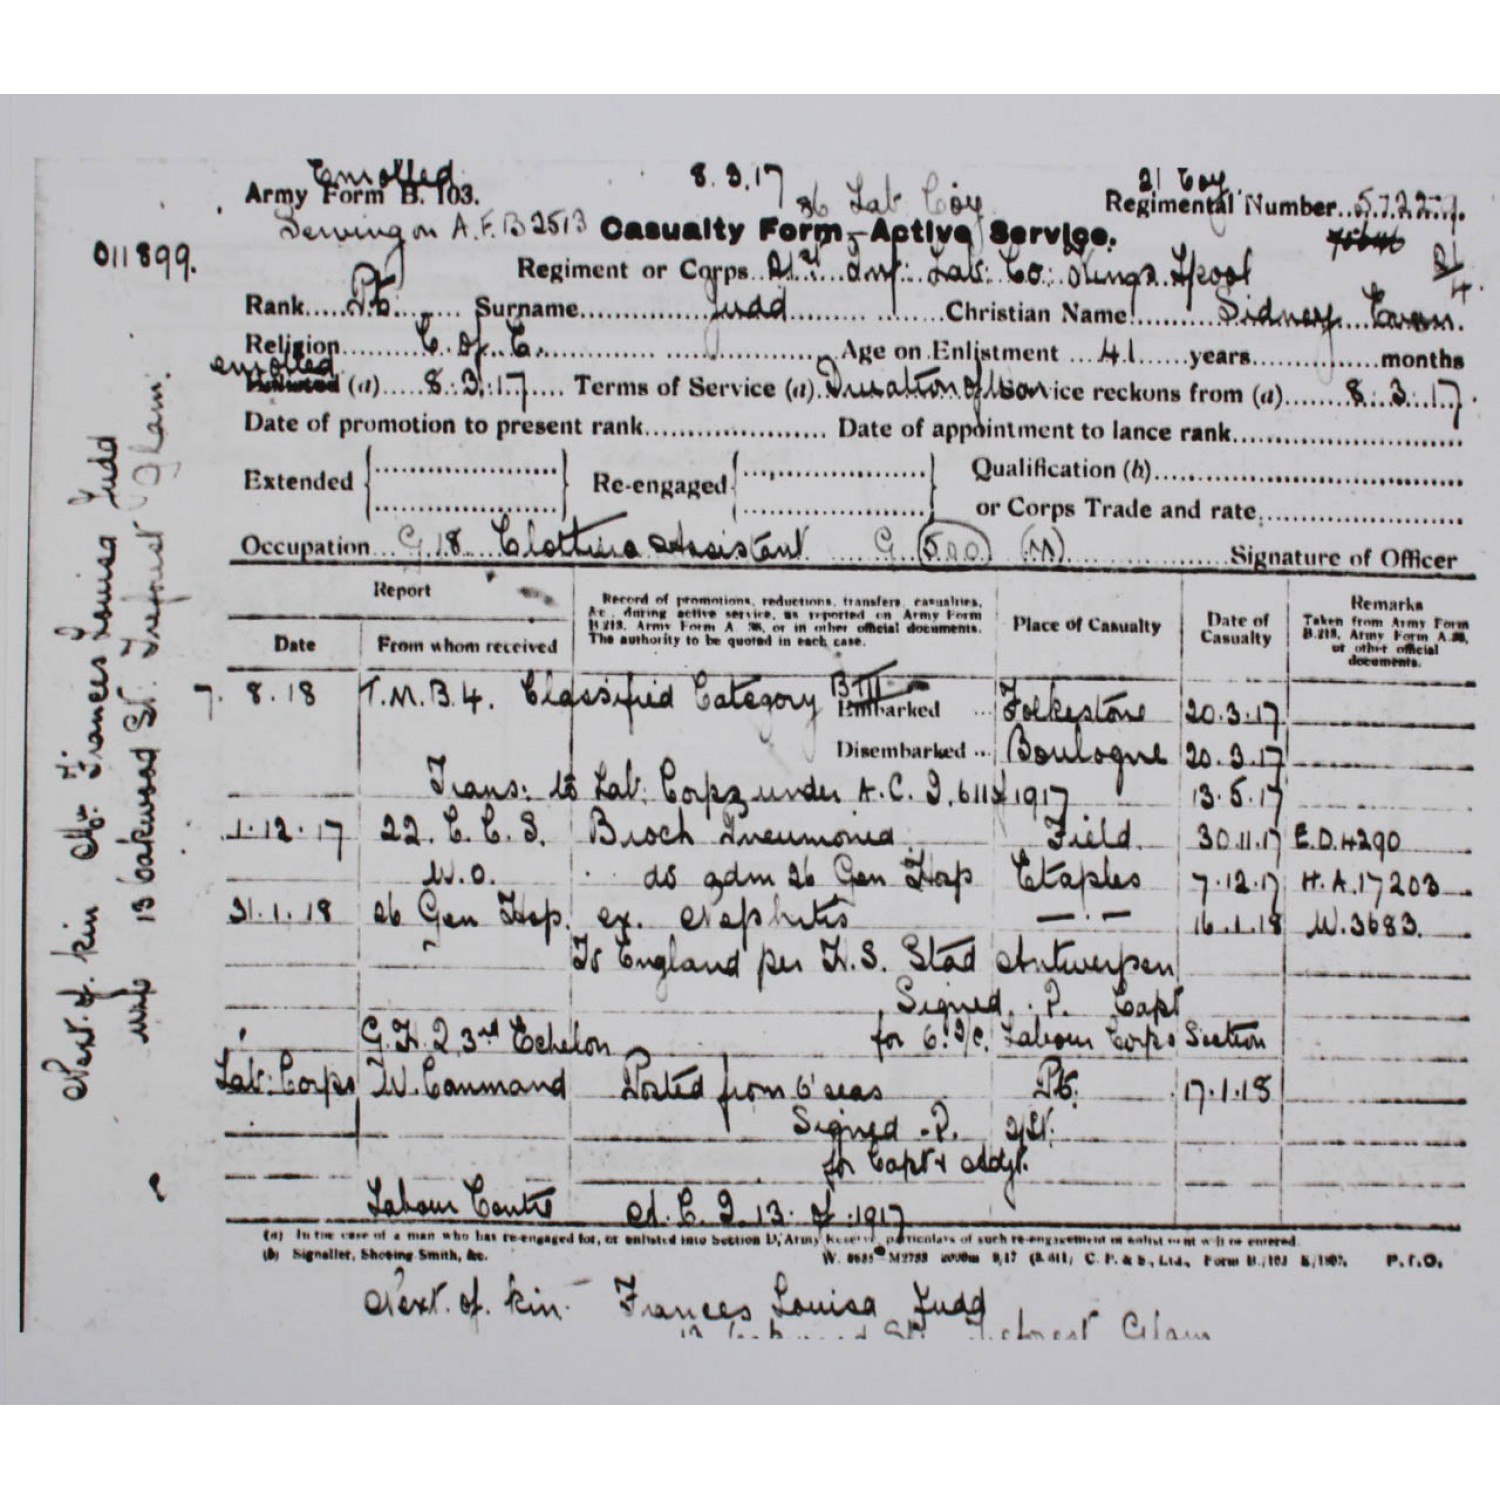 Enrolled 8.3.17 21 Coy
Army Form B. 103. 36 Lab Coy Regimental Number
Serving on A.F.B 2513 Casualty Form—Active Service.
011899.
Regiment or Corps 21st Inf: Lab: Co: Kings Lpool
Rank Pte. Surname Judd Christian Name Sidney Evan.
Religion C. of. E. Age on Enlistment 41 years months
enrolled
Enlisted (a) 8.3.17 Terms of Service (a) Duration of War ice reckons from (a) 8.3.17.
Date of promotion to present rank Date of appointment to lance rank
Extended Re-engaged Qualification (b)
or Corps Trade and rate
Occupation G 18 Clothing Assistant G 500 (M) Signature of Officer
Report
Date From whom received
Record of promotions, reductions, transfers, casualties,
&c., during active service, as reported on Army Form
B.213, Army Form A. 36, or in other official documents.
The authority to be quoted in each case.
Place of Casualty
Date of
Casualty
Remarks
Taken from Army Form
B.213, Army Form A.36,
or other official
documents.
7. 8. 18 T.M.B.4. Classified Category B III
Embarked ... Folkestone 20.3.17
Disembarked ... Boulogne 20.3.17
Trans: to Lab: Corps under A.C.I. 611 1917 13.5.17
1.12.17 22. C. C. S. Broch Pneumonia Field. 30.11.17 E.D.4290
W.O. do adm 26 Gen Hosp Etaples 7.12.17 H.A.17203
31.1.18 26 Gen Hosp. ex. Nephritis —.— 16.1.18 W.3683.
To England per H.S. Stad Antwerpen
Signed . P. Capt
G.H.Q 3rd Echelon for O. I/C. Labour Corps Section
Lab: Corps W. Command Posted from O'seas Pte. 17.1.18
Signed . P. 2/Lt.
for Capt & Adjt.
Labour Centre A. C. I. 13. of . 1917
(a) In the case of a man who has re-engaged for, or enlisted into Section D, Army Reserve, particulars of such re-engagement or enlistment will be entered.
(b) Signaller, Shoeing-Smith, &c. P.T.O.
Next. of. kin. Frances Louisa Judd
Treforest Glam
Next. of. kin Mrs Frances Louisa Judd
wife 13 Oakwood St. Treforest Glam.